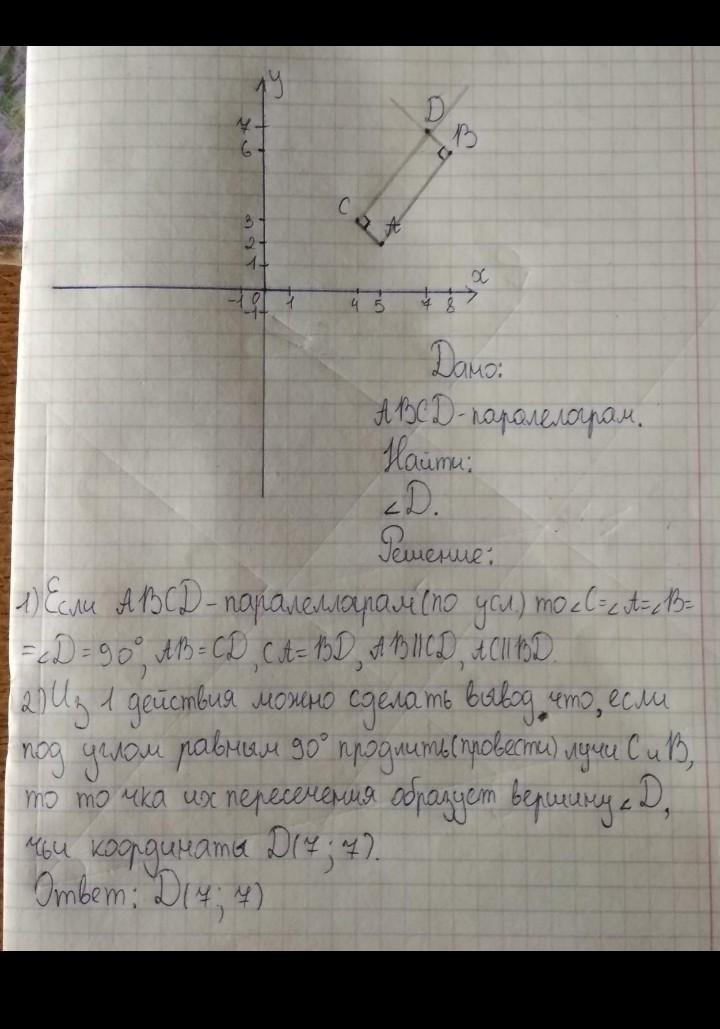 y
7
6
3
2
1
D
B
C
A
x
-1 0 1 4 5 7 8
-1
Дано:
ABCD-паралелограм.
Найти:
∠D.
Решение:
1) Если ABCD-паралеллограм(по усл.) то ∠C=∠A=∠B=
=∠D=90°, AB=CD, CA=BD, AB||CD, AC||BD.
2) Из 1 действия можно сделать вывод, что, если
под углом равным 90° продлить(провести) лучи C и B,
то то чка их пересечения образует вершину ∠D,
чьи координаты D(7; 7).
Ответ: D(7; 7)